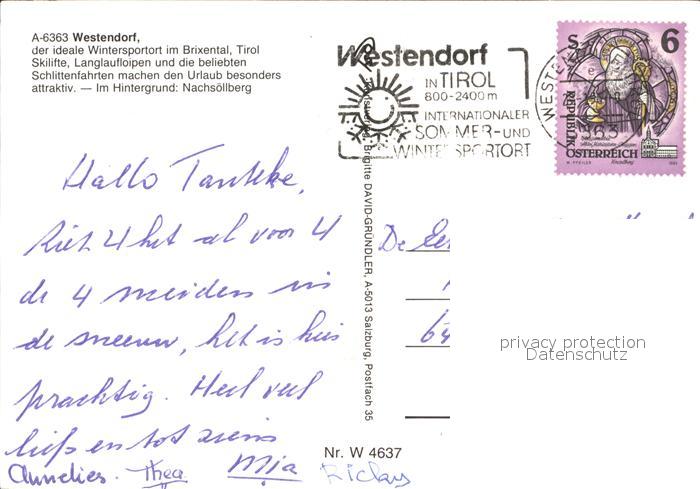 A-6363 Westendorf,
der ideale Wintersportort im Brixental, Tirol
Skilifte, Langlaufloipen und die beliebten
Schlittenfahrten machen den Urlaub besonders
attraktiv. — Im Hintergrund: Nachsöllberg
Westendorf
IN TIROL
800-2400m
INTERNATIONALER
SOMMER- UND
WINTERSPORTORT
S 6
REPUBLIK
ÖSTERREICH
Hallo Tantkke,
4 het al voor 4
de 4 meiden in
de sneeuw, het is hier
prachtig. Heel veel
liefs en tot ziens
Annelies. Thea Mia Ricky
De
64
Brigitte DAVID-GRÜNDLER, A-5013 Salzburg, Postfach 35
Nr. W 4637
privacy protection
Datenschutz